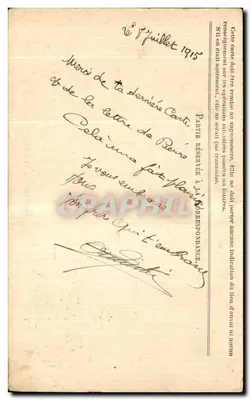 Le 7 Juillet 1915
Merci de ta dernière Carte
& de la lettre de Pierre
Cela m'a fait plaisir
Je vous embrasse
Tous
Ton père qui t'embrasse
PARTIE RÉSERVÉE A LA CORRESPONDANCE.
Cette carte doit être remise au vaguemestre. Elle ne doit porter aucune indication du lieu d'envoi ni aucun
renseignement sur les opérations militaires passées ou futures.
S'il en était autrement, elle ne serait pas transmise.
DELCAMPGRAPHILE